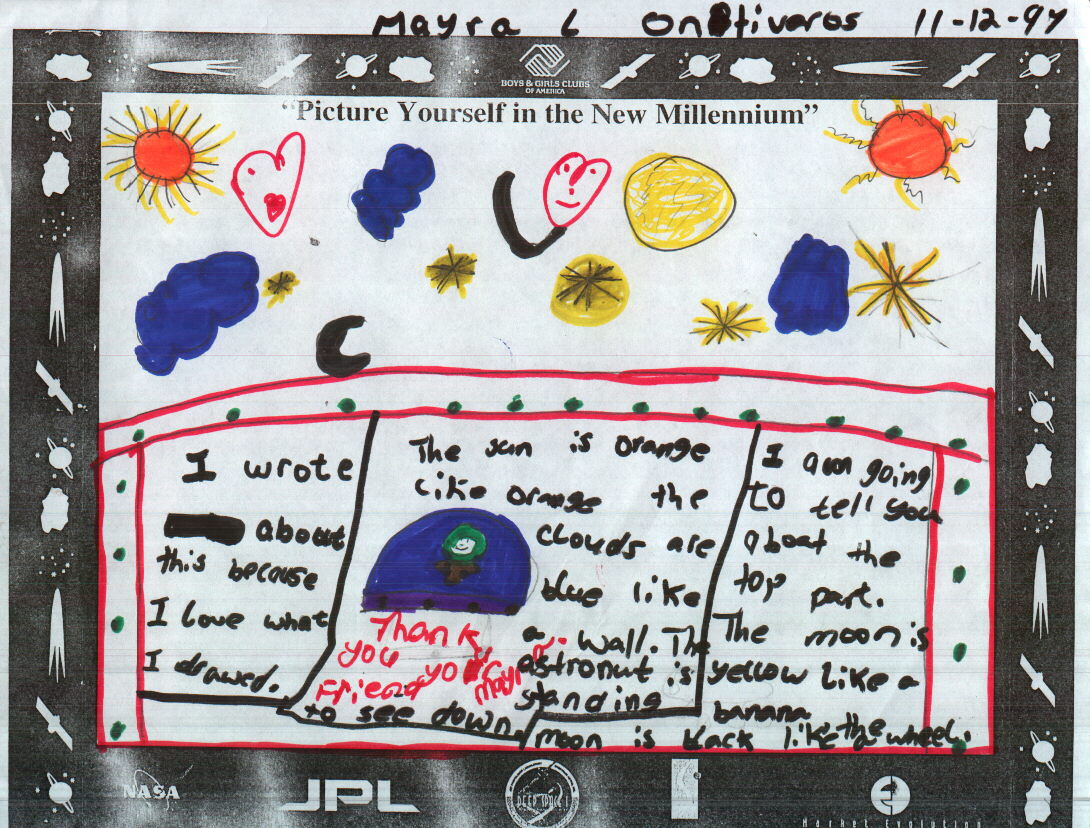 Mayra L Ontiveros 11-12-97
BOYS & GIRLS CLUBS
OF AMERICA
"Picture Yourself in the New Millennium"
I wrote
about
this because
I love what
I drawed.
The sun is orange
like orange the
clouds are
blue like
a wall. The
astronut is
standing
to see down.
Thank
you
your
Friend
Mayra
I am going
to tell you
about the
top part.
The moon is
yellow like a
banana
moon is black like the wheel.
NASA
JPL
DEEP SPACE 1
Market Evolution